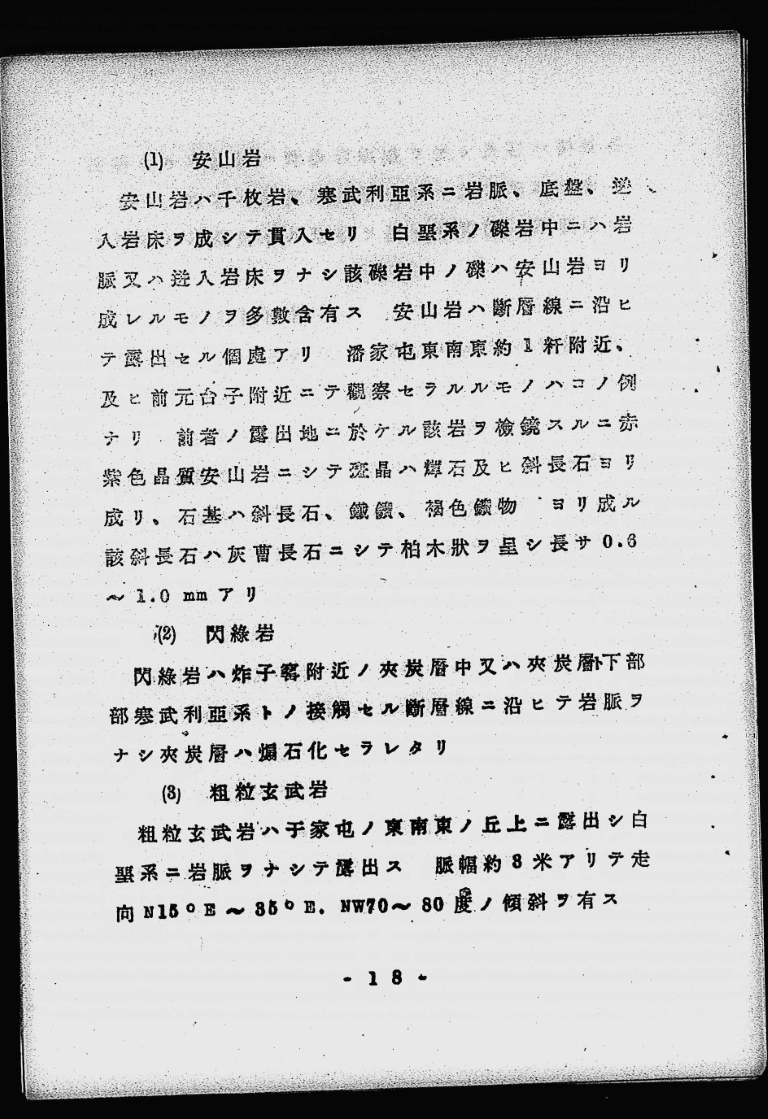 (1) 安山岩
安山岩ハ千枚岩、寒武利亞系ニ岩脈、底盤、迸
入岩床ヲ成シテ貫入セリ 白堊系ノ礫岩中ニハ岩
脈又ハ迸入岩床ヲナシ該礫岩中ノ礫ハ安山岩ヨリ
成レルモノヲ多數含有ス 安山岩ハ斷層線ニ沿ヒ
テ露出セル個處アリ 潘家屯東南東約1粁附近、
及ヒ前元台子附近ニテ觀察セラルルモノハコノ例
ナリ 前者ノ露出地ニ於ケル該岩ヲ檢鏡スルニ赤
紫色晶質安山岩ニシテ斑晶ハ輝石及ヒ斜長石ヨリ
成リ、石基ハ斜長石、鐵鑛、褐色鑛物 ヨリ成ル
該斜長石ハ灰曹長石ニシテ柏木狀ヲ呈シ長サ0.6
～1.0 mmアリ
(2) 閃綠岩
閃綠岩ハ炸子窰附近ノ夾炭層中又ハ夾炭層ト下部
部寒武利亞系トノ接觸セル斷層線ニ沿ヒテ岩脈ヲ
ナシ夾炭層ハ煽石化セラレタリ
(3) 粗粒玄武岩
粗粒玄武岩ハ于家屯ノ東南東ノ丘上ニ露出シ白
堊系ニ岩脈ヲナシテ露出ス 脈幅約3米アリテ走
向N15°E～35°E. NW70～80度ノ傾斜ヲ有ス
- 18 -